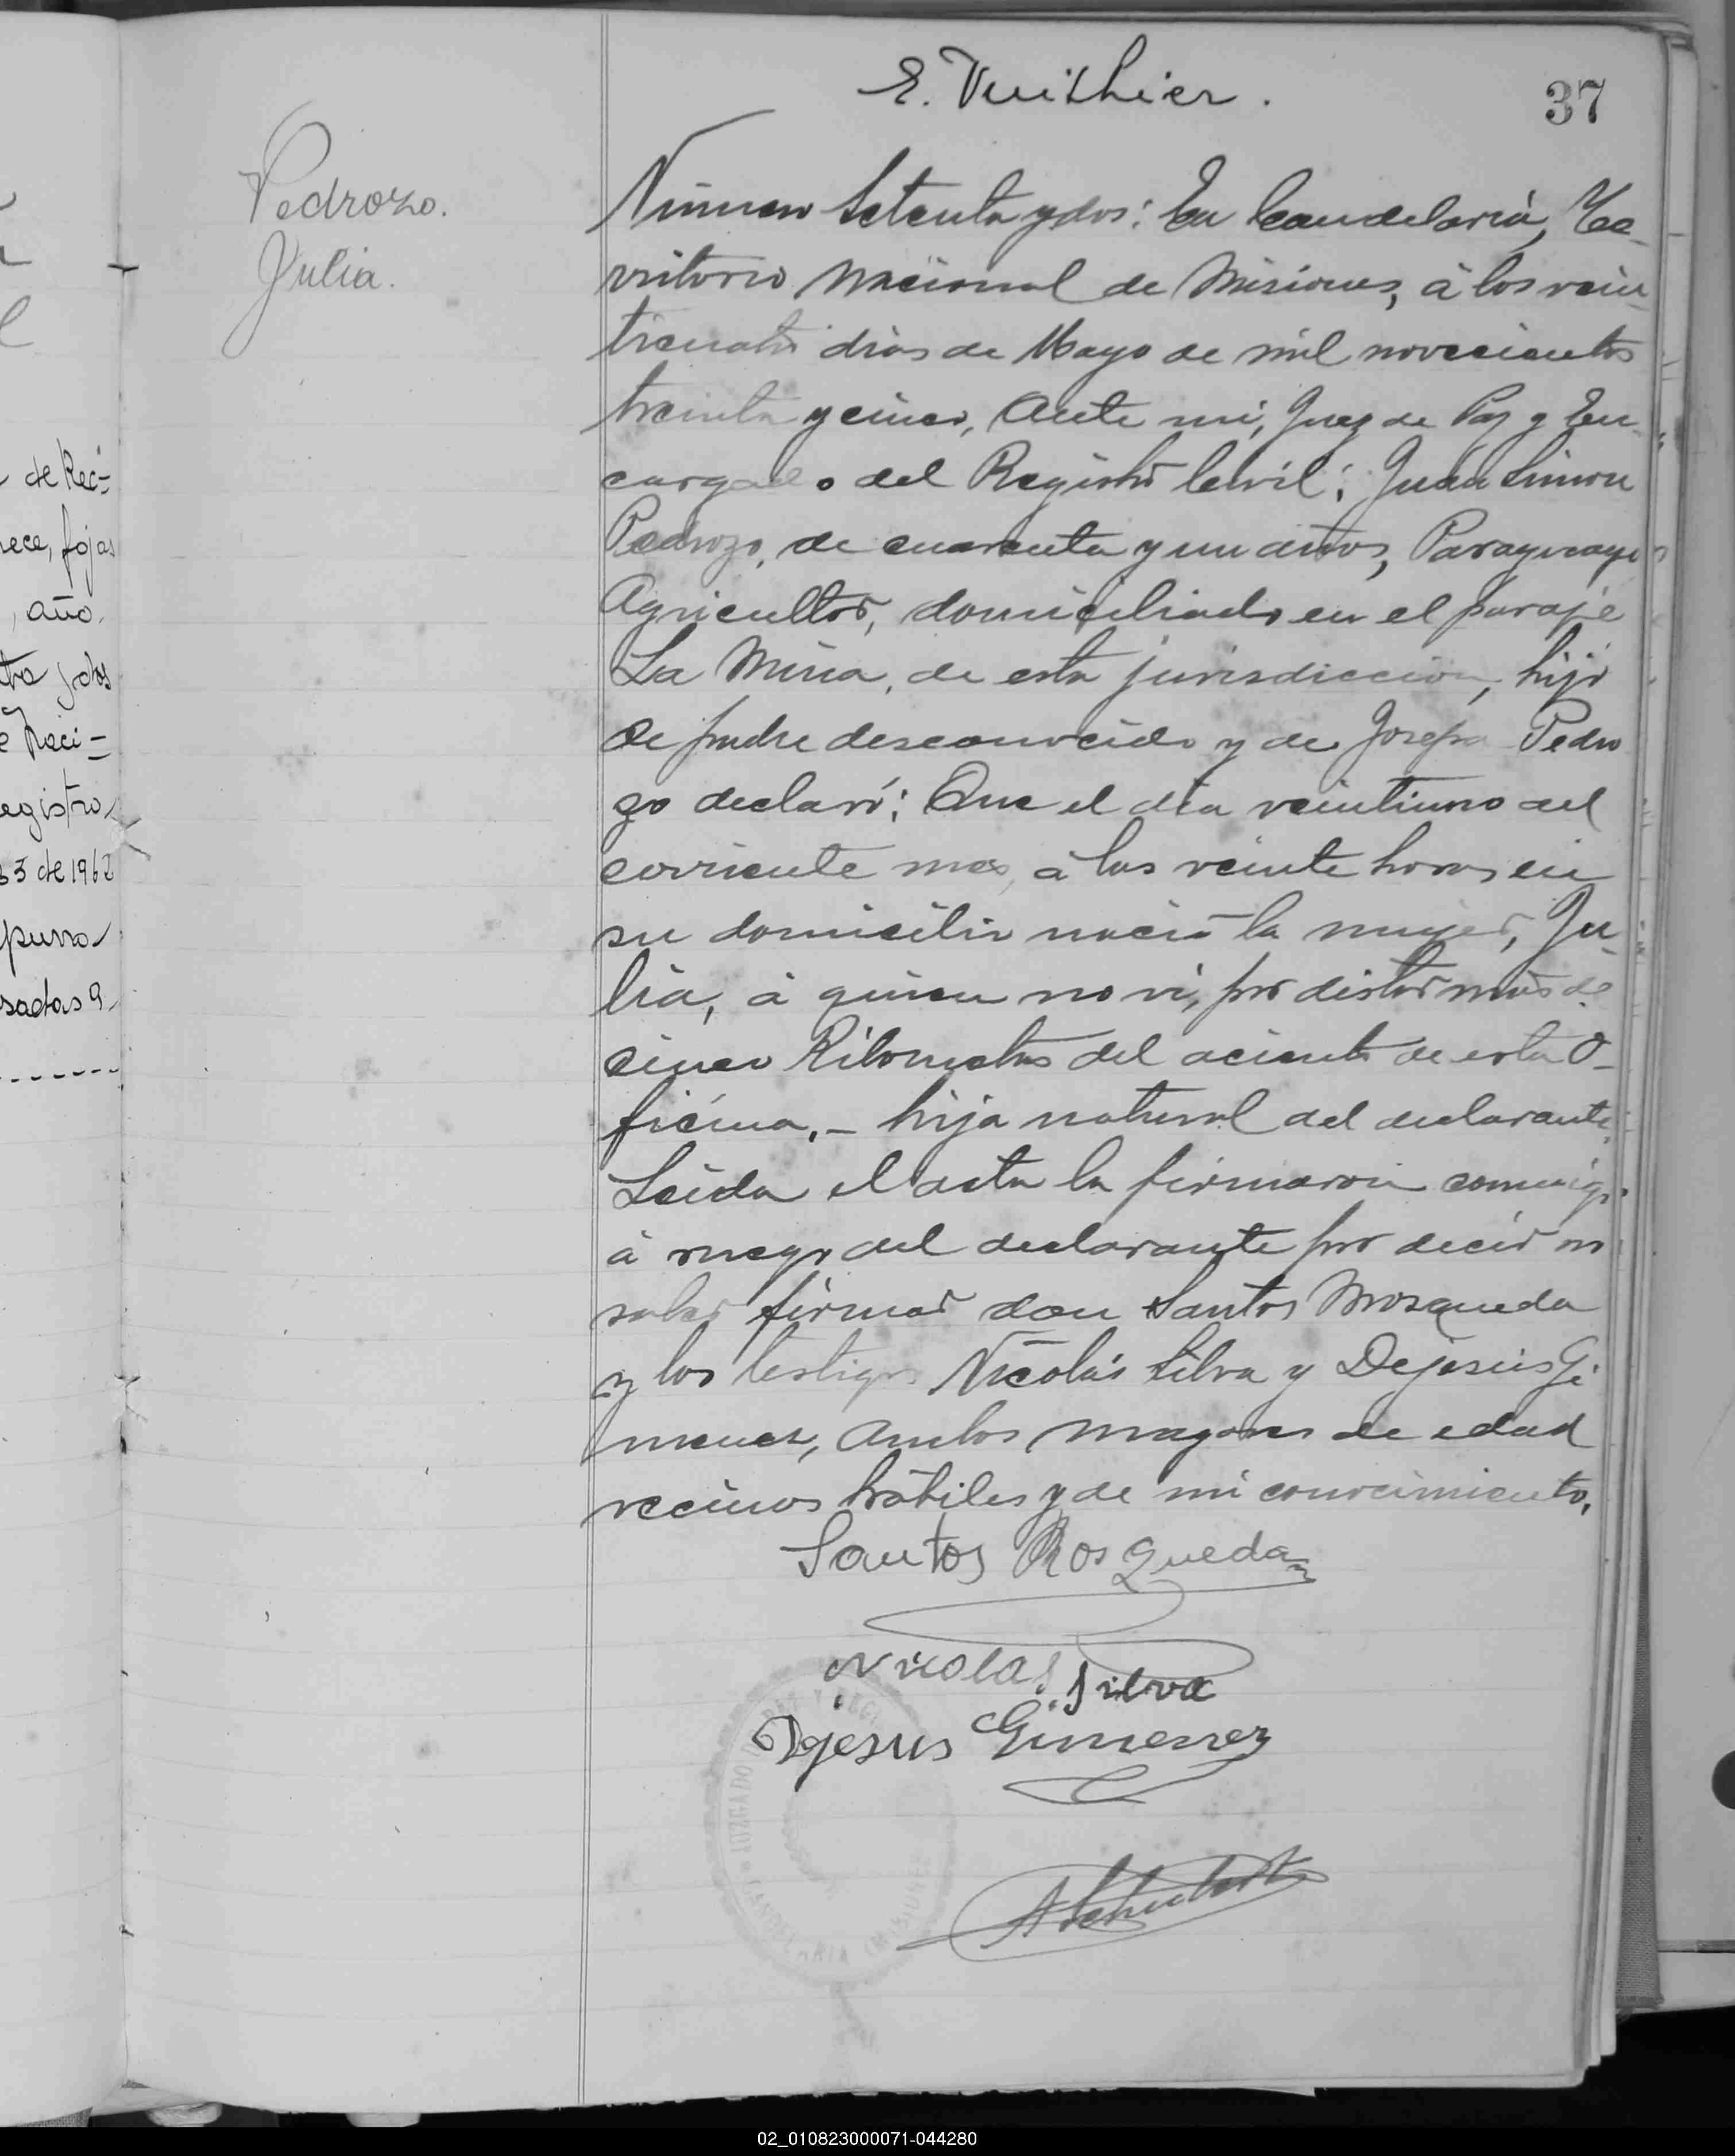 E. Vuithier.
37
Pedrozo.
Julia.
Número Setenta y dos: En Candelaria, Te-
rritorio Nacional de Misiones, á los vein-
ticuatro dias de Mayo de mil novecientos
treinta y cinco, Ante mi, Juez de Paz y En-
cargado del Registro Civil; Juan Simon
Pedrozo, de cuarenta y un años, Paraguayo
Agricultor, domiciliado en el paraje
La Mina, de esta jurisdiccion, hijo
de padre desconocido y de Josefa Pedro
zo declaró; Que el dia veintiuno del
corriente mes, á las veinte horas en
su domicilio nació la mujer, Ju-
lia, á quien no vi, por distar más de
cinco Kilometros del aciento de esta O-
ficina.- hija natural del declarante.
Leida el acta la firmaron conmigo.
á ruego del declarante por decir no
saber firmar don Santos Mosqueda
y los testigos Nicolás Silva y Dejesús Gi
menez, Ambos mayores de edad
vecinos hábiles y de mi conocimiento.
Santos Rosqueda
Nicolas Silva
Dejesus Gimenez
de Rec-
ece, fojas
, año.
y dos
Naci-
egistro
33 de 1962
sadas 9
JUZGADO DE PAZ Y REG
CANDELARIA (MISIONES)
02_010823000071-044280